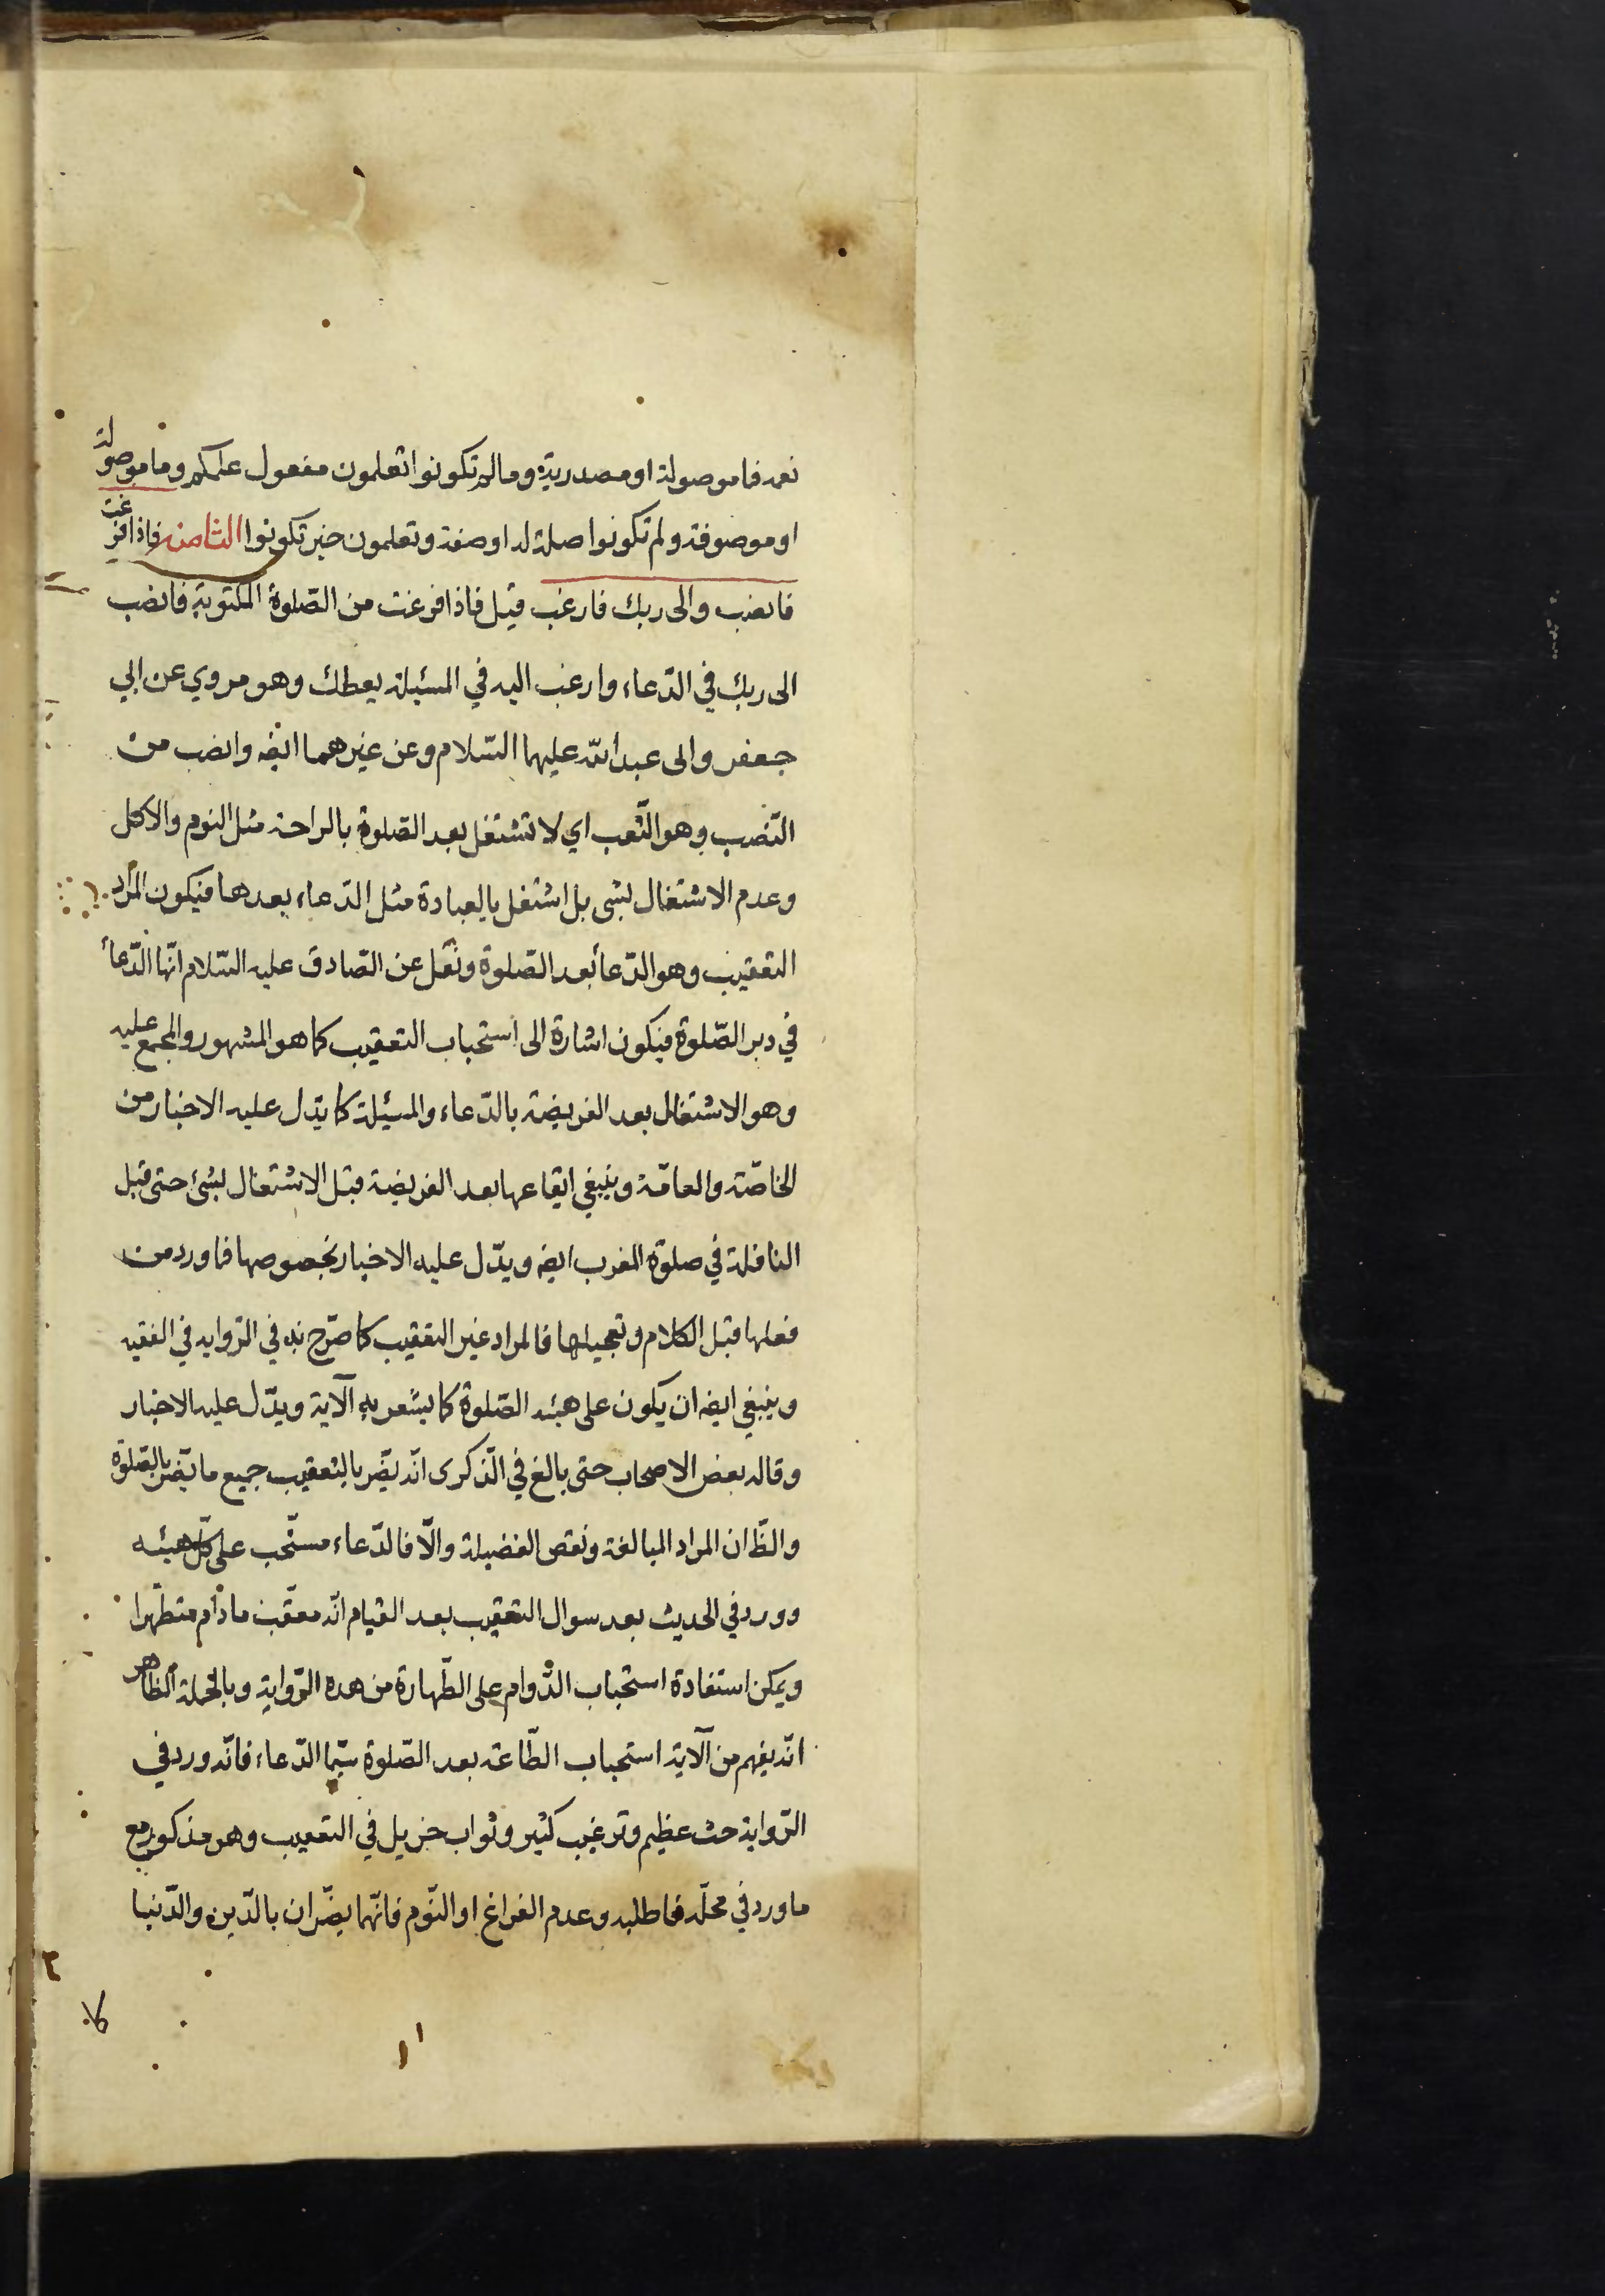 نعمه فما موصولة او مصدرية وما لم تكونوا تعلمون مفعول علمكم وما موصولة
او موصوفة ولم تكونوا صلة له او صفة وتعلمون خبر تكونوا الثامنه فاذا فرغت
فانصب والى ربك فارغب قيل فاذا فرغت من الصّلوة المكتوبة فانصب
الى ربك في الدّعاء وارغب اليه في المسئيلة يعطك وهو مروي عن ابي
جعفر والى عبد الله عليهما السّلام وعن غيرهما ايضه وانصب من
النّصب وهو التّعب اي لا تشتغل بعد الصّلوة بالراحة مثل النوم والاكل
وعدم الاشتغال بشى بل اشتغل بالعبادة مثل الدّعاء بعدها فيكون المراد
التعقيب وهو الدّعأ بعد الصّلوة ونقل عن الصّادق عليه السّلام انّها الدّعأ
في دبر الصّلوة فيكون اشارة الى استحباب التعقيب كما هو المشهور والمجمع عليه
وهو الاشتغال بعد الفريضة بالدّعاء والمسيئلة كما يدّل عليه الاخبار من
الخاصّة والعامّة وينبغي ايقاعها بعد الفريضة قبل الاشتغال بشئ حتى قبل
النافلة في صلوة المغرب ايضه ويدّل عليه الاخبار بخصوصها فما ورد من
فعلها قبل الكلام وتعجيلها فالمراد غير التعقيب كما صرّح به في الرّوايه في الفقيه
وينبغي ايضه ان يكون على هيئه الصّلوة كما يشعر به الآية ويدّل عليه الاخبار
وقاله بعض الاصحاب حتى بالغ في الذّكرى انّه يضّر بالتعقيب جميع ما يضّر بالصّلوة
والظّ ان المراد المبالغة ونقص الفضيلة والّا فالدّعاء مستحّب على كلّ هيئه
وورد في الحديث بعد سوال التعقيب بعد القيام انّه معقّب ما دام متطّهرا
ويمكن استفادة استحباب الدّوام على الطّهارة من هده الرّواية وبالجملة الظاهر
انّه يفهم من الآية استحباب الطّاعة بعد الصّلوة سيّما الدّعاء فانّه ورد في
الرّواية حث عظيم وترغيب كثير وثواب جزيل في التعقيب وهو مذكور مع
ما ورد في محلّه فاطلبه وعدم الفراغ او النّوم فانّهما يضّران بالدّين والدّنيا